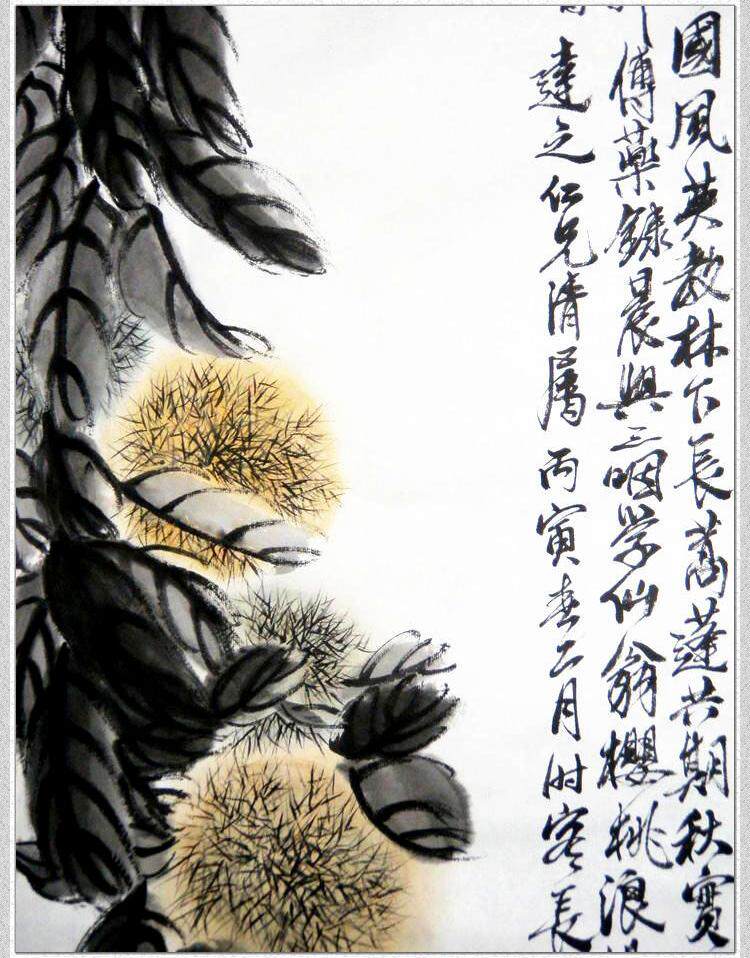 國風莫教林下長蒿蓬共期秋實
傅藥錄晨興三咽学仙翁櫻桃浪
達之仁兄清屬丙寅春二月时客長